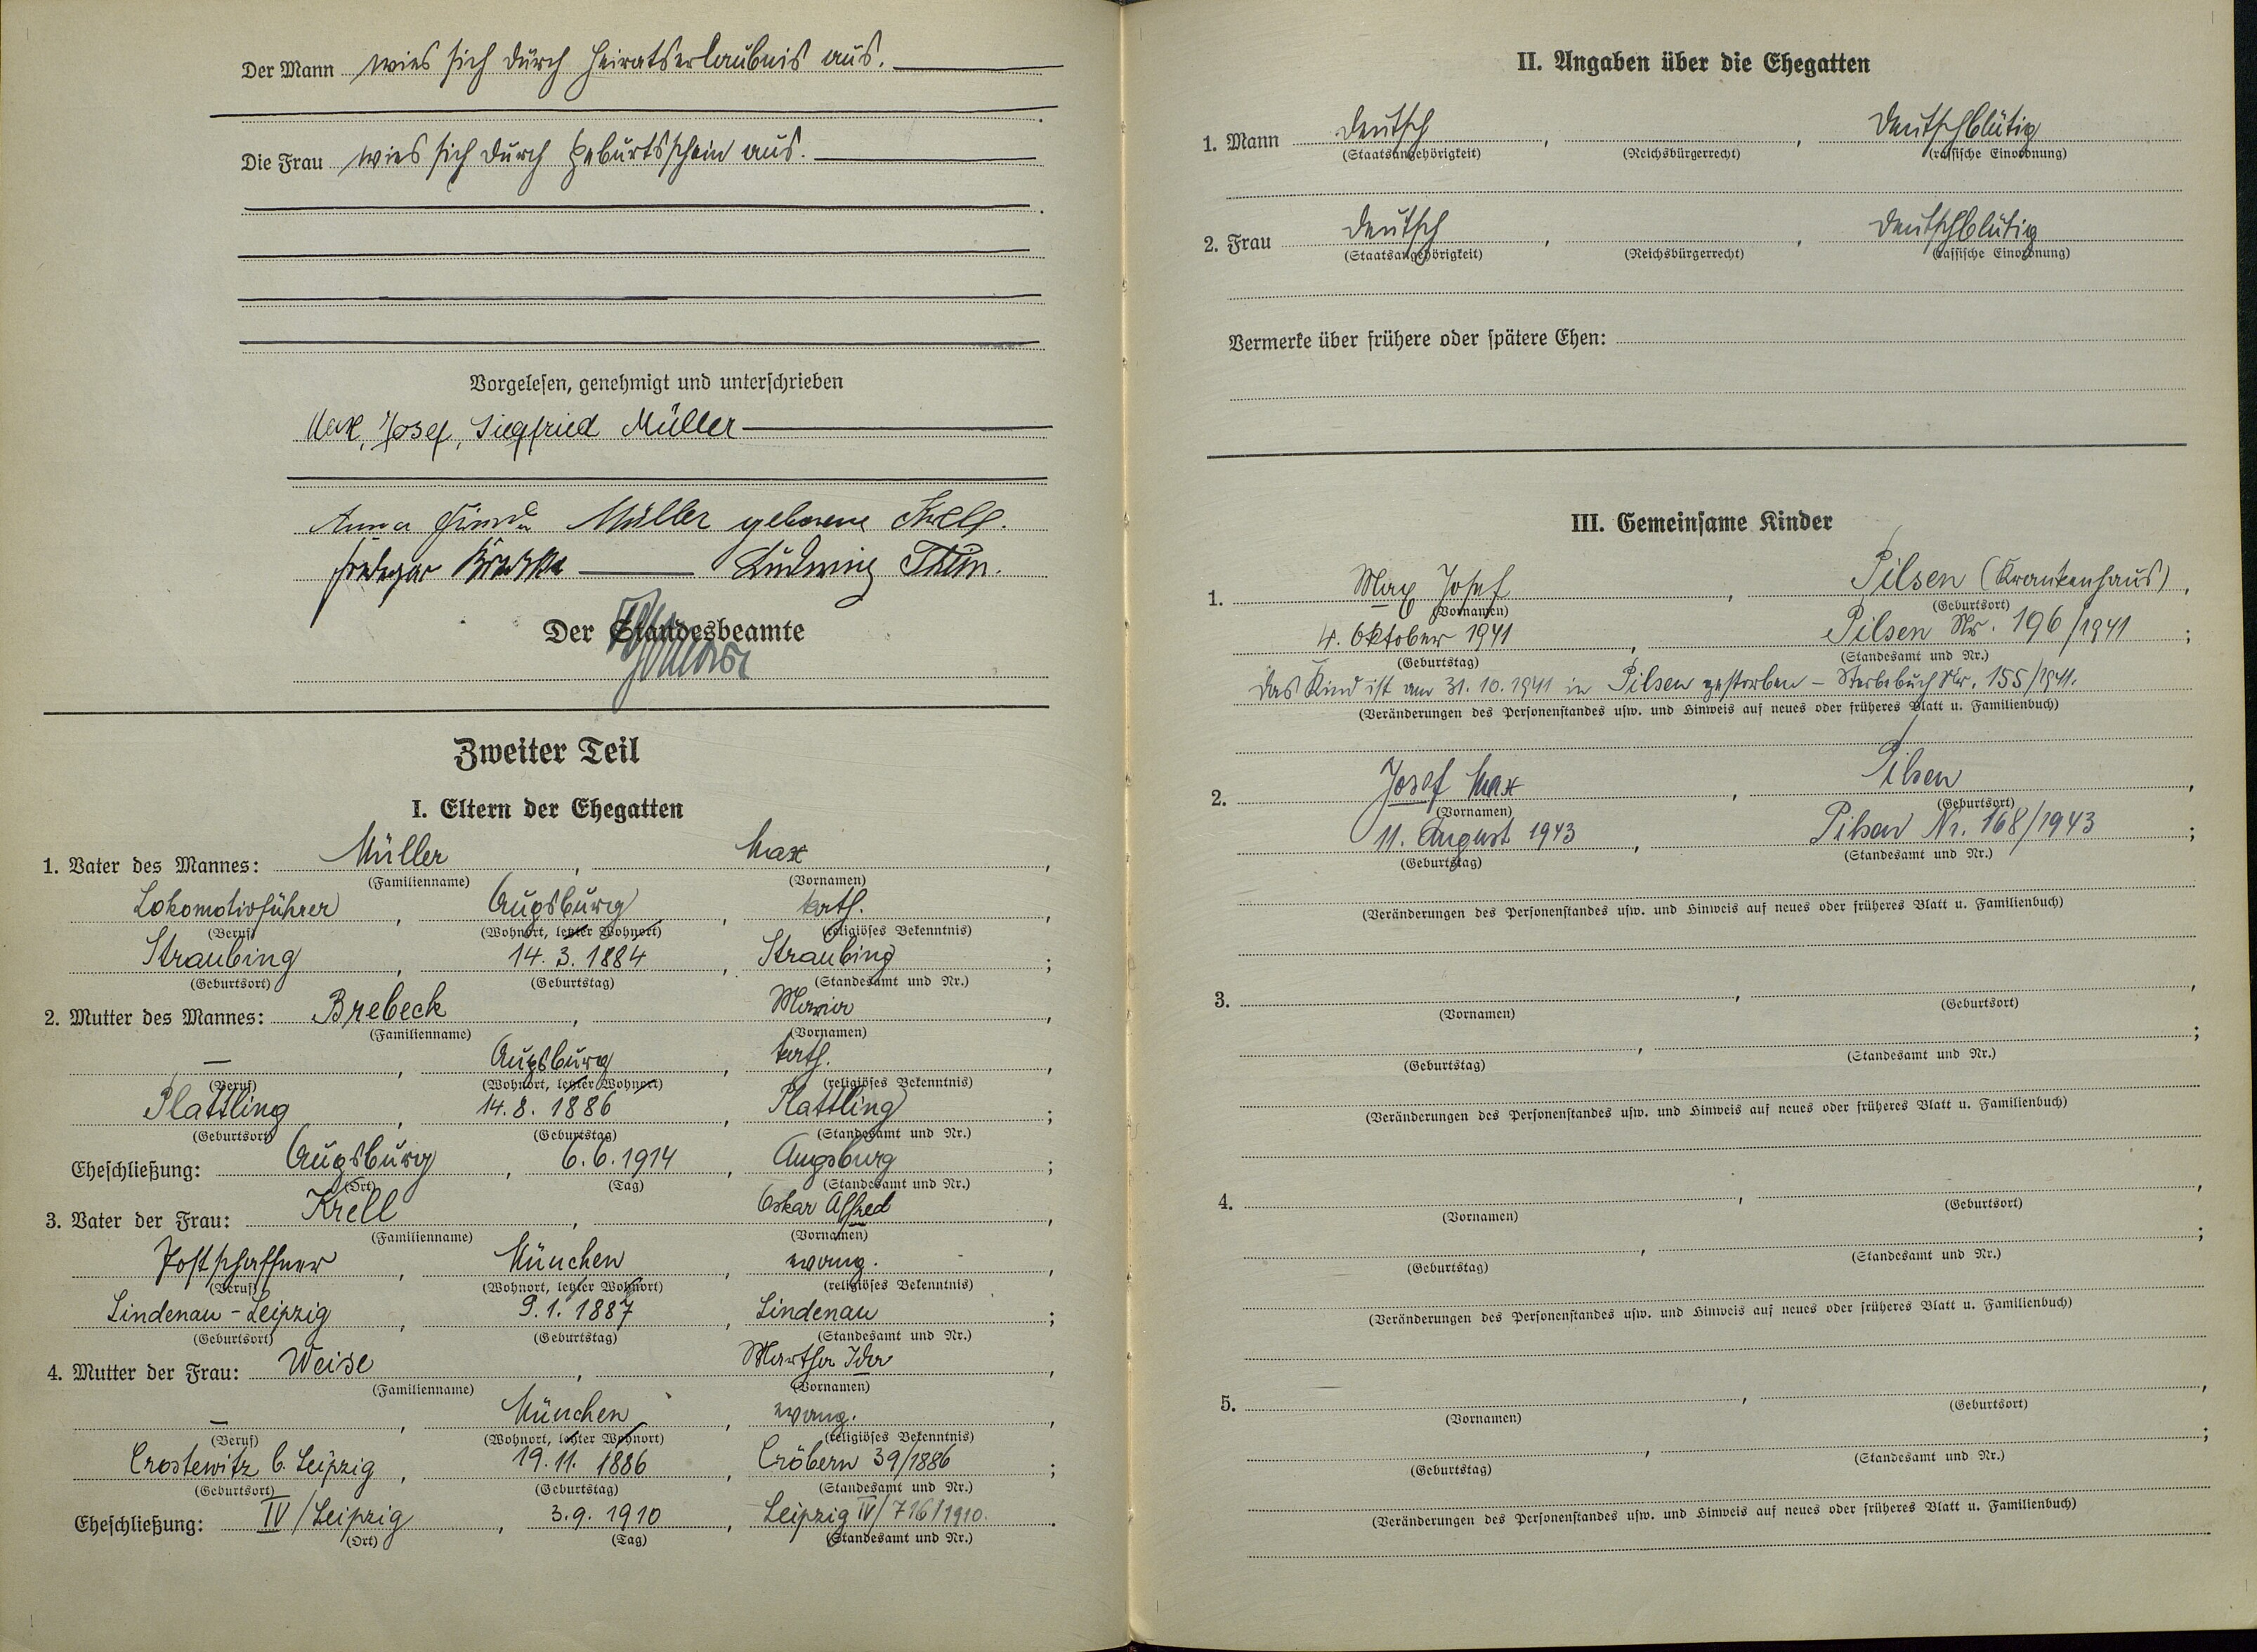 Der Mann wies sich durch Heiratserlaubnis aus.
Die Frau wies sich durch Geburtsschein aus.
Vorgelesen, genehmigt und unterschrieben
Max, Josef, Siegfried Müller
Anna Müller geborene Krell.
Ludwig
Der Standesbeamte
Zweiter Teil
I. Eltern der Ehegatten
1. Vater des Mannes: Müller, Max,
(Familienname) (Vornamen)
Lokomotivführer, Augsburg, kath.,
(Beruf) (Wohnort, letzter Wohnort) (religiöses Bekenntnis)
Straubing, 14. 3. 1884, Straubing;
(Geburtsort) (Geburtstag) (Standesamt und Nr.)
2. Mutter des Mannes: Brebeck, Maria,
(Familienname) (Vornamen)
—, Augsburg, kath.,
(Beruf) (Wohnort, letzter Wohnort) (religiöses Bekenntnis)
Plattling, 14. 8. 1886, Plattling;
(Geburtsort) (Geburtstag) (Standesamt und Nr.)
Eheschließung: Augsburg, 6. 6. 1914, Augsburg;
(Ort) (Tag) (Standesamt und Nr.)
3. Vater der Frau: Krell, Oskar Alfred,
(Familienname) (Vornamen)
Postschaffner, München, evang.,
(Beruf) (Wohnort, letzter Wohnort) (religiöses Bekenntnis)
Lindenau - Leipzig, 9. 1. 1887, Lindenau;
(Geburtsort) (Geburtstag) (Standesamt und Nr.)
4. Mutter der Frau: Weise, Martha Ida,
(Familienname) (Vornamen)
—, München, evang.,
(Beruf) (Wohnort, letzter Wohnort) (religiöses Bekenntnis)
Crostewitz b. Leipzig, 19. 11. 1886, Cröbern 39/1886;
(Geburtsort) (Geburtstag) (Standesamt und Nr.)
Eheschließung: IV/Leipzig, 3. 9. 1910, Leipzig IV/716/1910.
(Ort) (Tag) (Standesamt und Nr.)
II. Angaben über die Ehegatten
1. Mann deutsch, , deutschblütig
(Staatsangehörigkeit) (Reichsbürgerrecht) (rassische Einordnung)
2. Frau deutsch, , deutschblütig
(Staatsangehörigkeit) (Reichsbürgerrecht) (rassische Einordnung)
Vermerke über frühere oder spätere Ehen:
III. Gemeinsame Kinder
1. Max Josef, Pilsen (Krankenhaus),
(Vornamen) (Geburtsort)
4. Oktober 1941, Pilsen Nr. 196/1941;
(Geburtstag) (Standesamt und Nr.)
Das Kind ist am 31. 10. 1941 in Pilsen gestorben – Sterbebuch Nr. 155/1941.
(Veränderungen des Personenstandes usw. und Hinweis auf neues oder früheres Blatt u. Familienbuch)
2. Josef Max, Pilsen,
(Vornamen) (Geburtsort)
11. August 1943, Pilsen Nr. 168/1943;
(Geburtstag) (Standesamt und Nr.)
(Veränderungen des Personenstandes usw. und Hinweis auf neues oder früheres Blatt u. Familienbuch)
3. , ,
(Vornamen) (Geburtsort)
, ;
(Geburtstag) (Standesamt und Nr.)
(Veränderungen des Personenstandes usw. und Hinweis auf neues oder früheres Blatt u. Familienbuch)
4. , ,
(Vornamen) (Geburtsort)
, ;
(Geburtstag) (Standesamt und Nr.)
(Veränderungen des Personenstandes usw. und Hinweis auf neues oder früheres Blatt u. Familienbuch)
5. , ,
(Vornamen) (Geburtsort)
, ;
(Geburtstag) (Standesamt und Nr.)
(Veränderungen des Personenstandes usw. und Hinweis auf neues oder früheres Blatt u. Familienbuch)